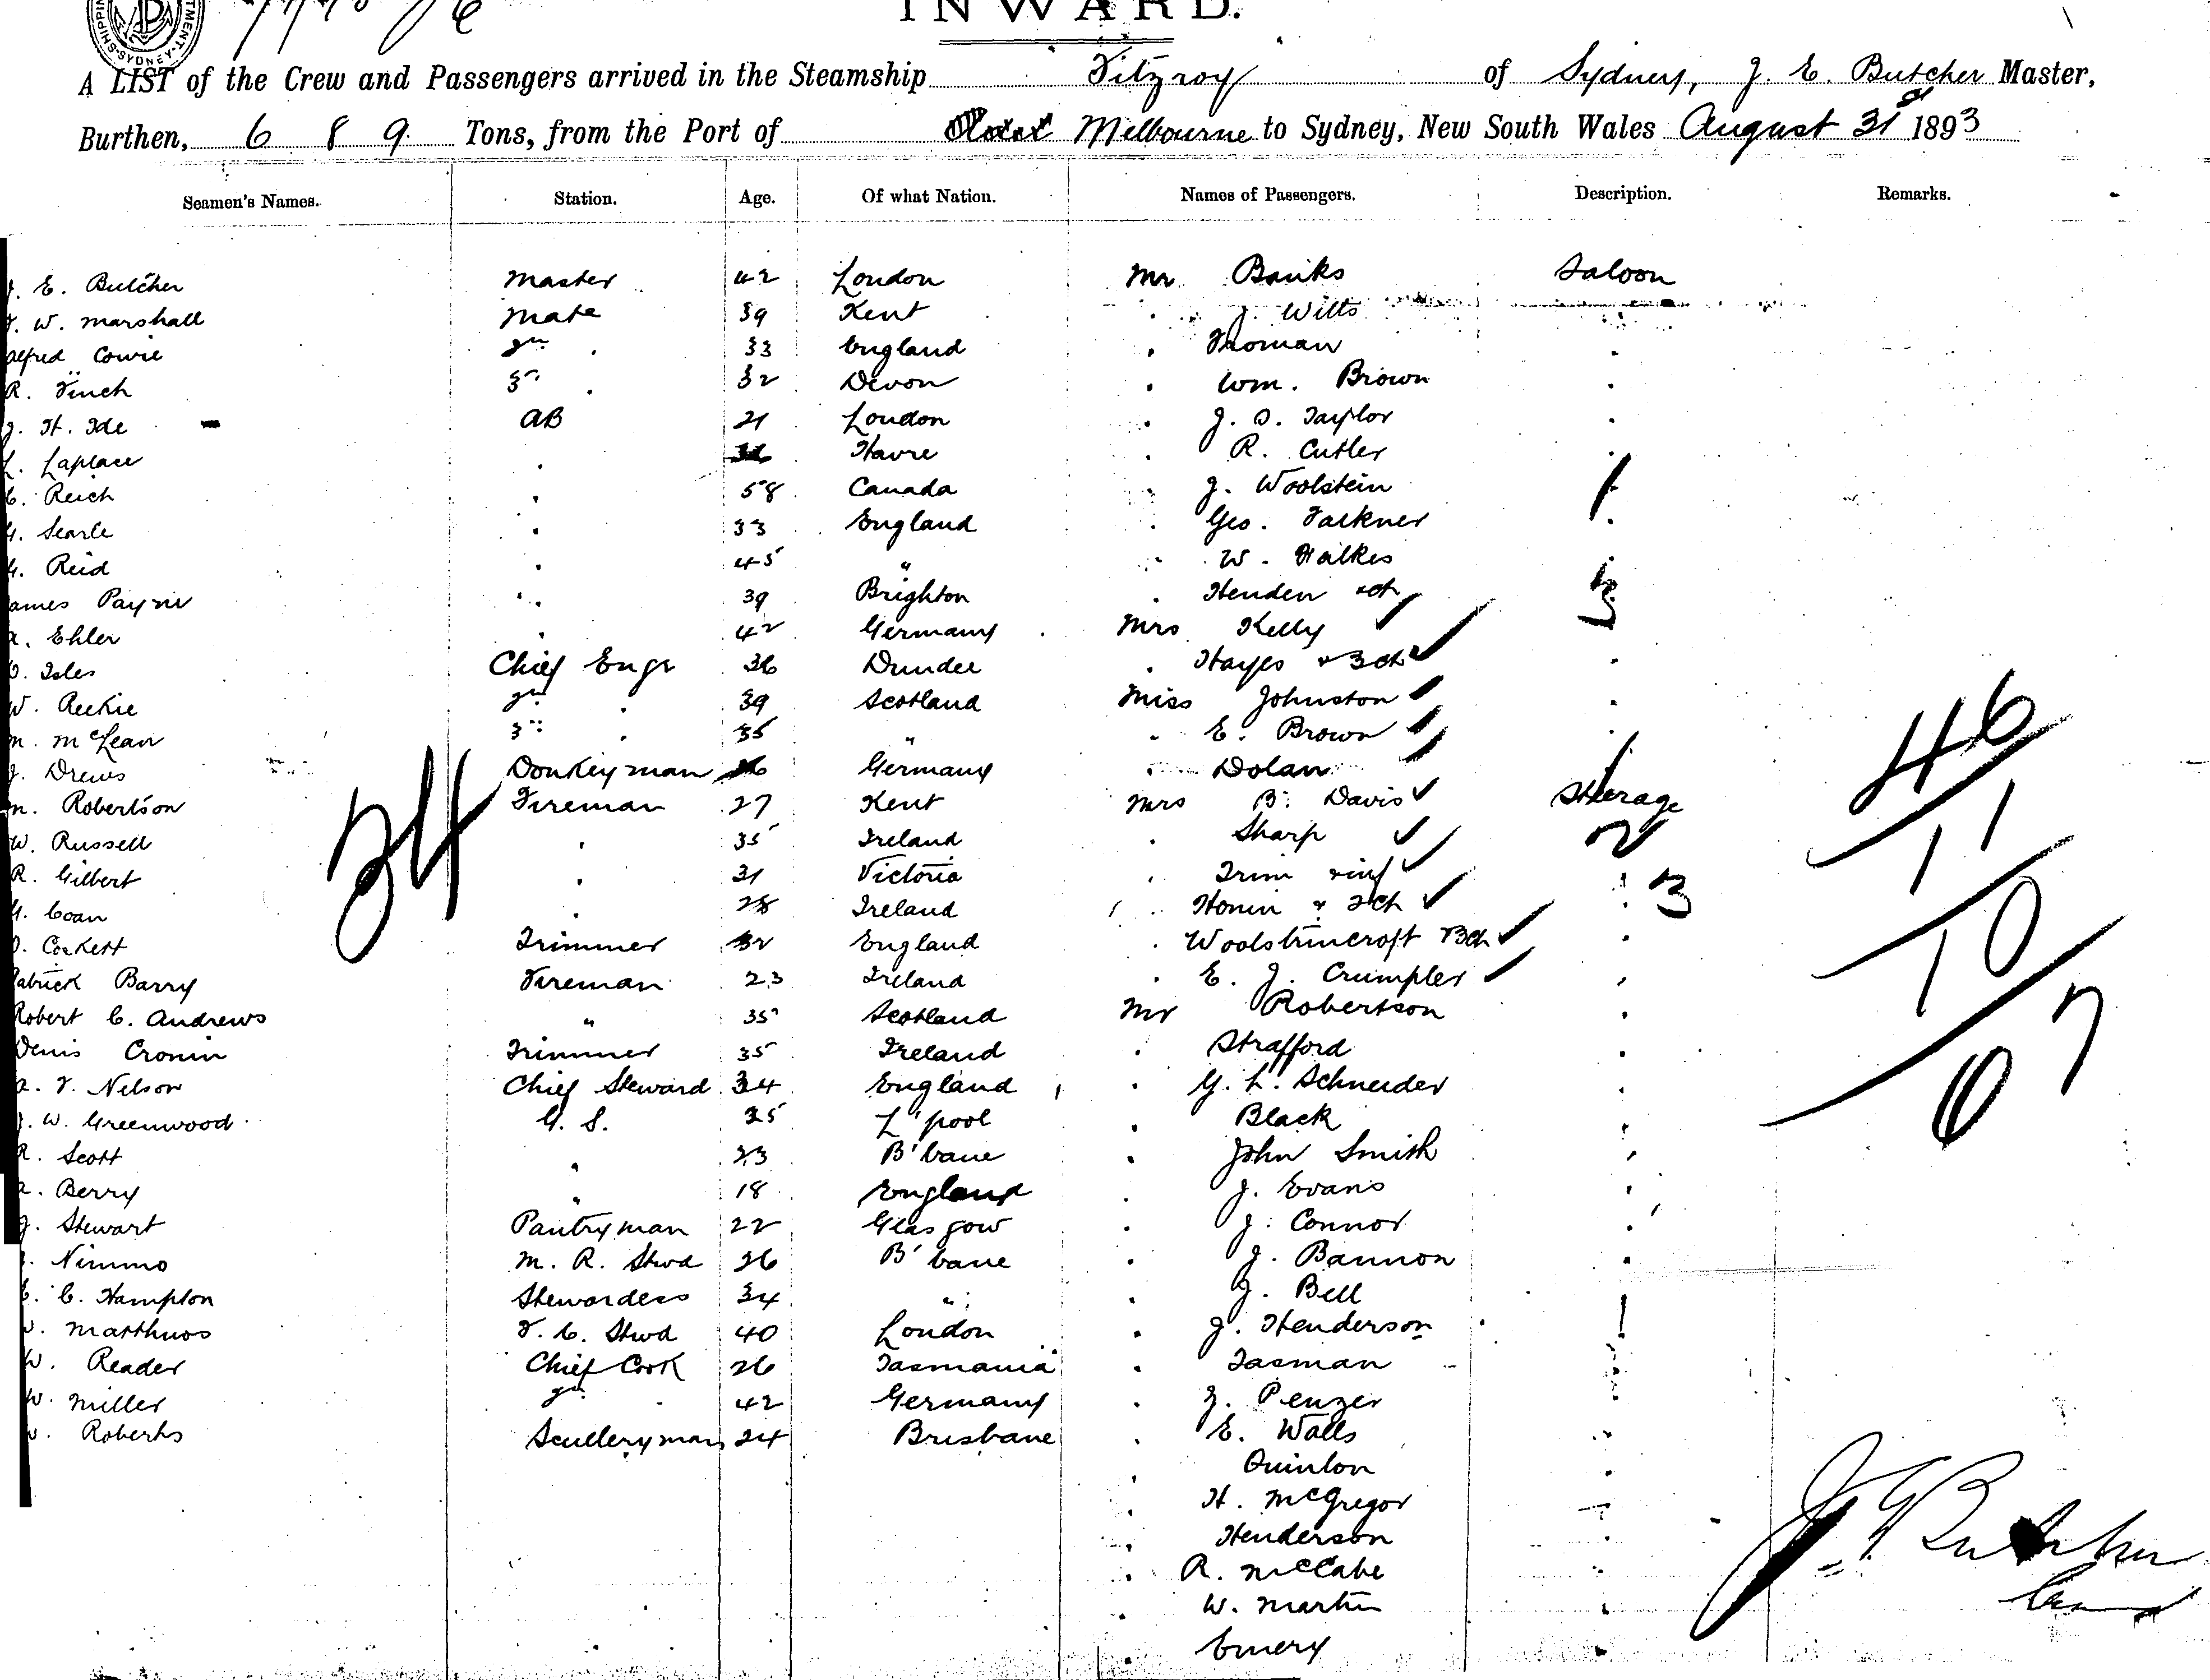 INWARD.
A LIST of the Crew and Passengers arrived in the Steamship Fitzroy of Sydney, J. E. Butcher Master,
Burthen, 689 Tons, from the Port of Melbourne to Sydney, New South Wales August 31st 1893
Seamen's Names. Station. Age. Of what Nation. Names of Passengers. Description. Remarks.
E. Butcher Master 42 London Mr Banks Saloon
W. Marshall Mate 39 Kent J. Wilts
Alfred Cowie 2nd 33 England Troman
R. Finch 3rd 32 Devon Wm. Brown
J. H. Ide AB 21 London J. S. Taylor
L. Laplace Havre R. Cutler
C. Reich 58 Canada J. Woolstein
G. Searle 33 England Geo. Falkner
G. Reid 45 " W. Halkes
James Payne 39 Brighton Henden + ch
A. Ehler 42 Germany Mrs Kelly
Isles Chief Engr 36 Dundee Hayes + 3 ch
W. Reekie 2nd 39 Scotland Miss Johnston
M. McLean 3rd 35 " E. Brown
J. Drews Donkeyman Germany Dolan
M. Robertson Fireman 27 Kent Mrs B. Davis Steerage
W. Russell 35 Ireland Sharp
R. Gilbert 31 Victoria Trim + inf
G. Coan 28 Ireland Honin + 2 ch
Corkett Trimmer 32 England Woolstrincroft 3 ch
Patrick Barry Fireman 23 Ireland E. J. Crumpler
Robert C. Andrews " 35 Scotland Mr Robertson
Denis Cronin Trimmer 35 Ireland Strafford
A. F. Nelson Chief Steward 34 England G. L. Schneider
W. Greenwood G. S. 25 L'pool Black
R. Scott " 23 B'bane John Smith
A. Berry " 18 England J. Evans
J. Stewart Pantryman 22 Glasgow J. Connor
Nimmo M. R. Stwd 26 B'bane J. Bannon
E. C. Hampton Stewardess 34 " J. Bell
Matthews F. C. Stwd 40 London J. Henderson
W. Reader Chief Cook 26 Tasmania Tasman
W. Miller 2nd 42 Germany J. Penzer
Roberts Sculleryman 24 Brisbane E. Walls
Quinlon
H. McGregor
Henderson
R. McCabe
W. Martin
Emery
34
46
11
10
67
J. E. Butcher